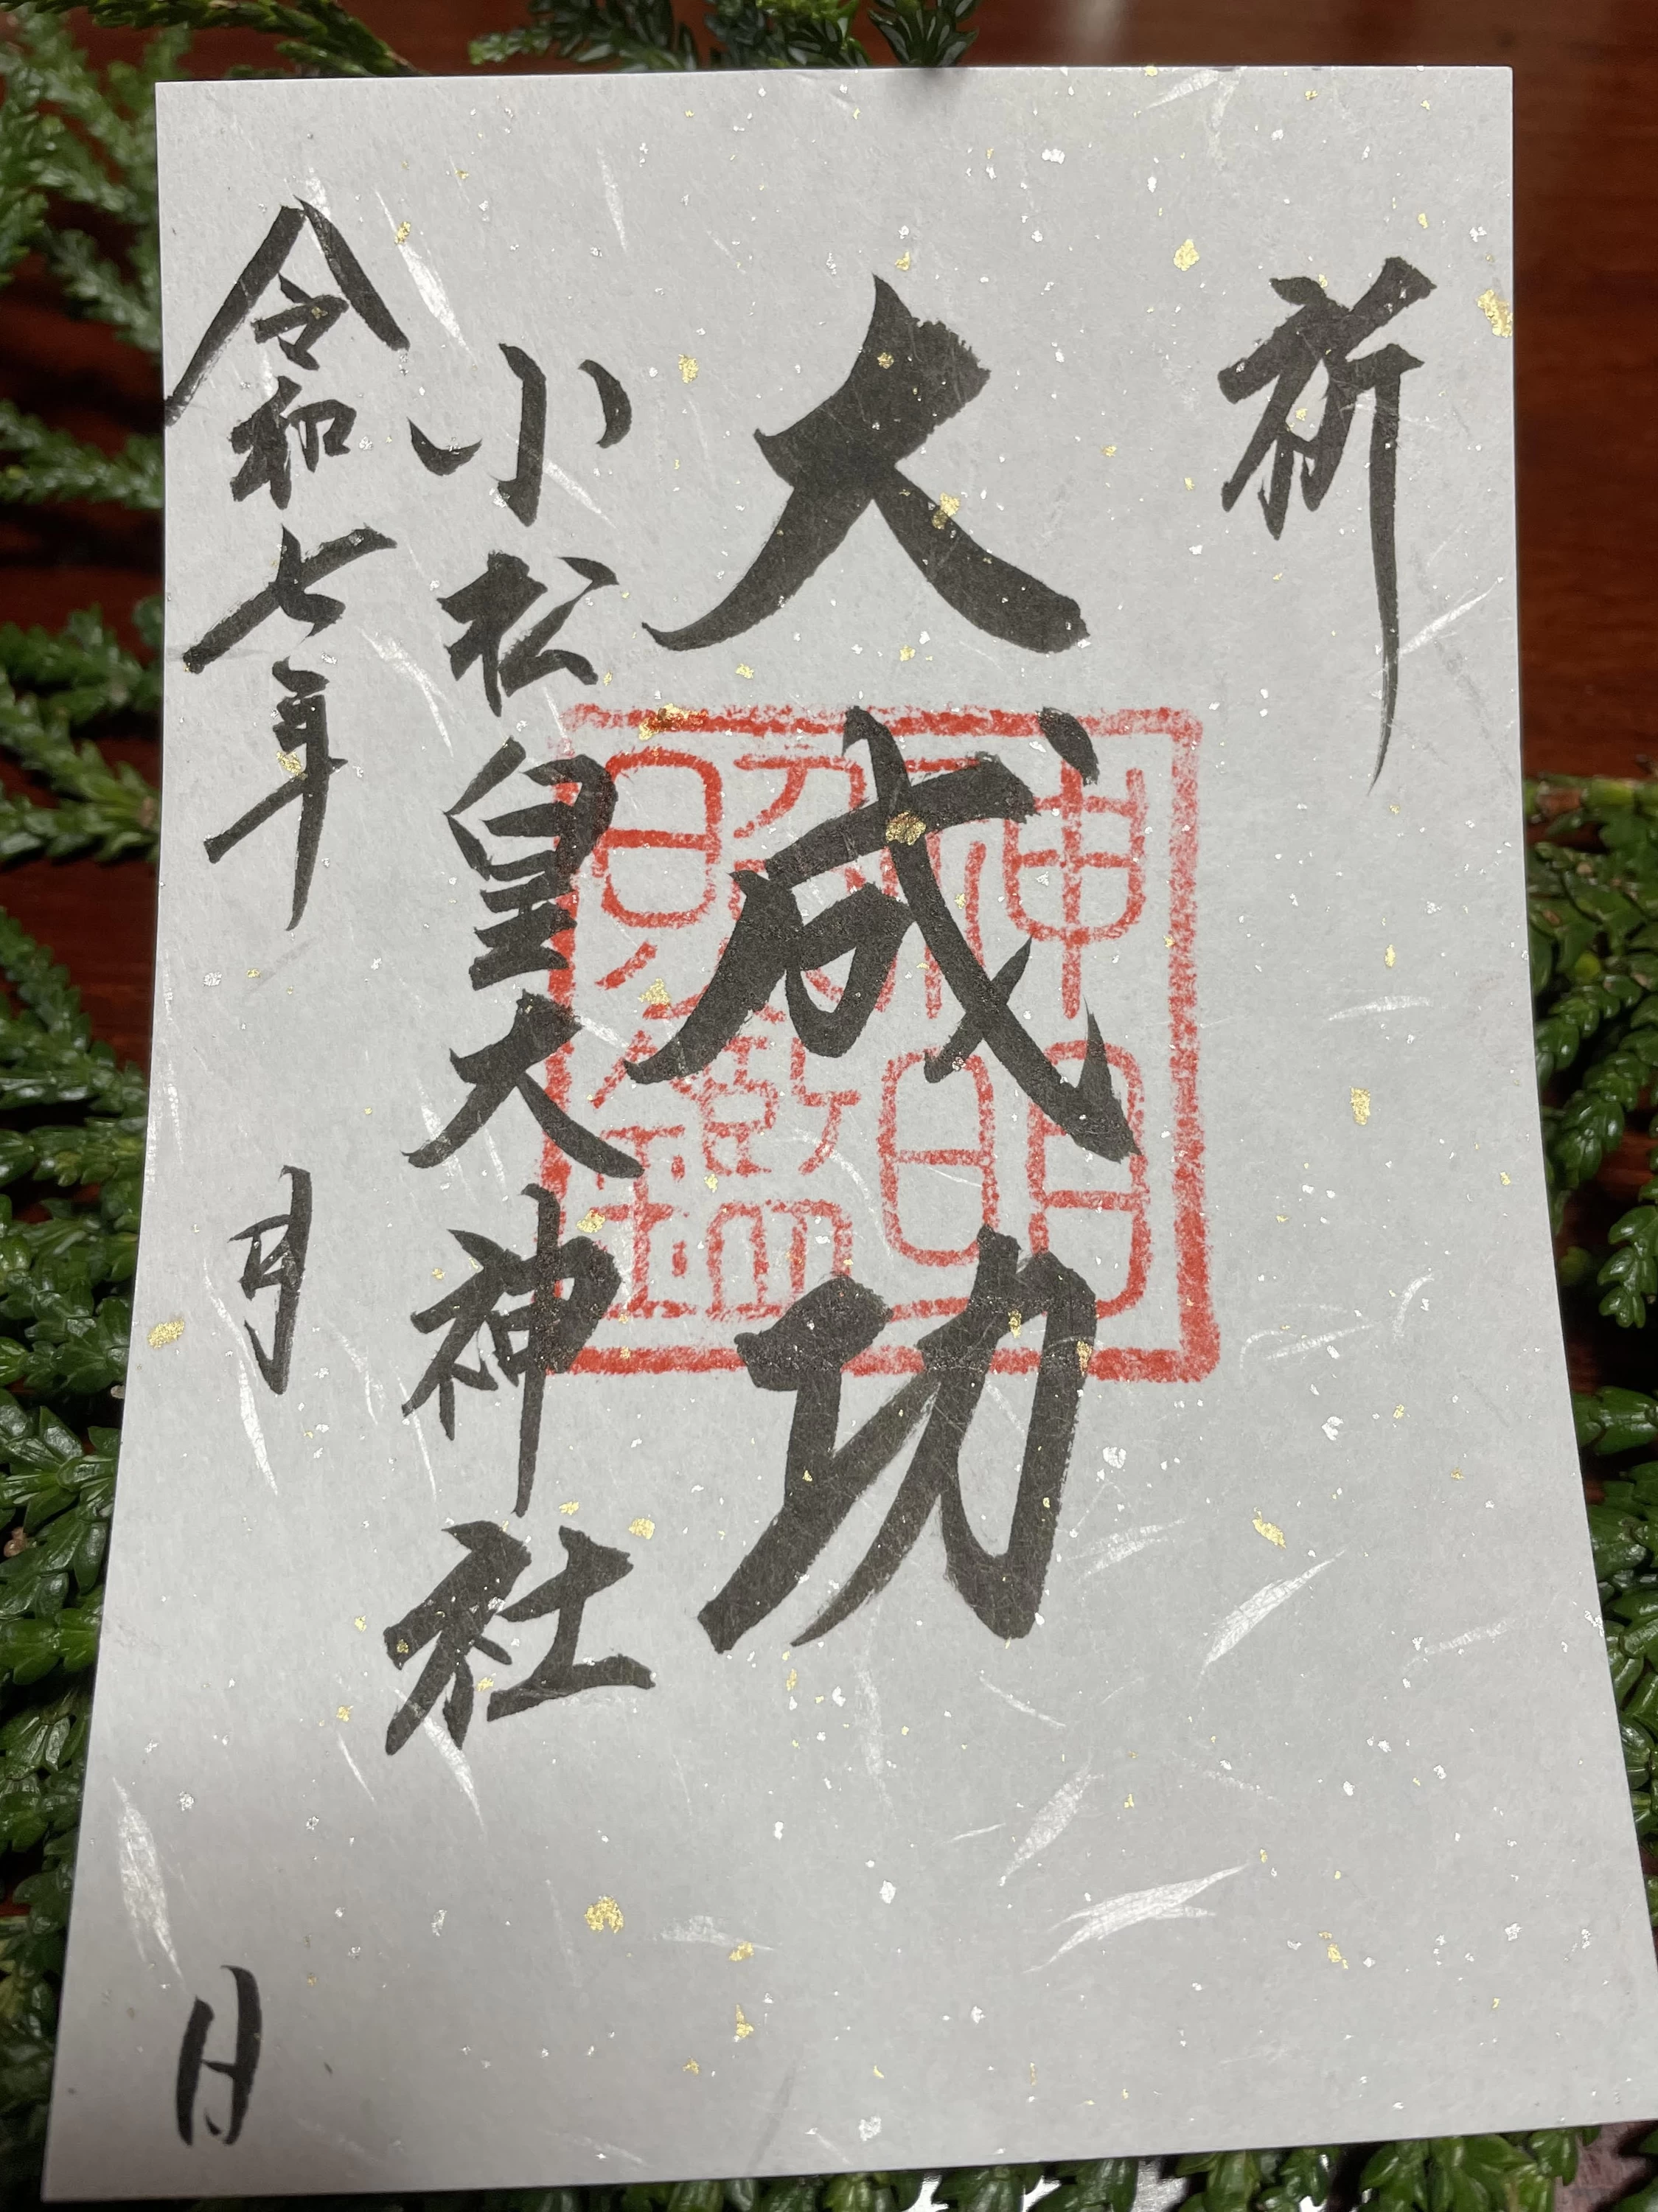 祈
大成功
神明
照鑑
小松皇大神社
令和七年 月 日